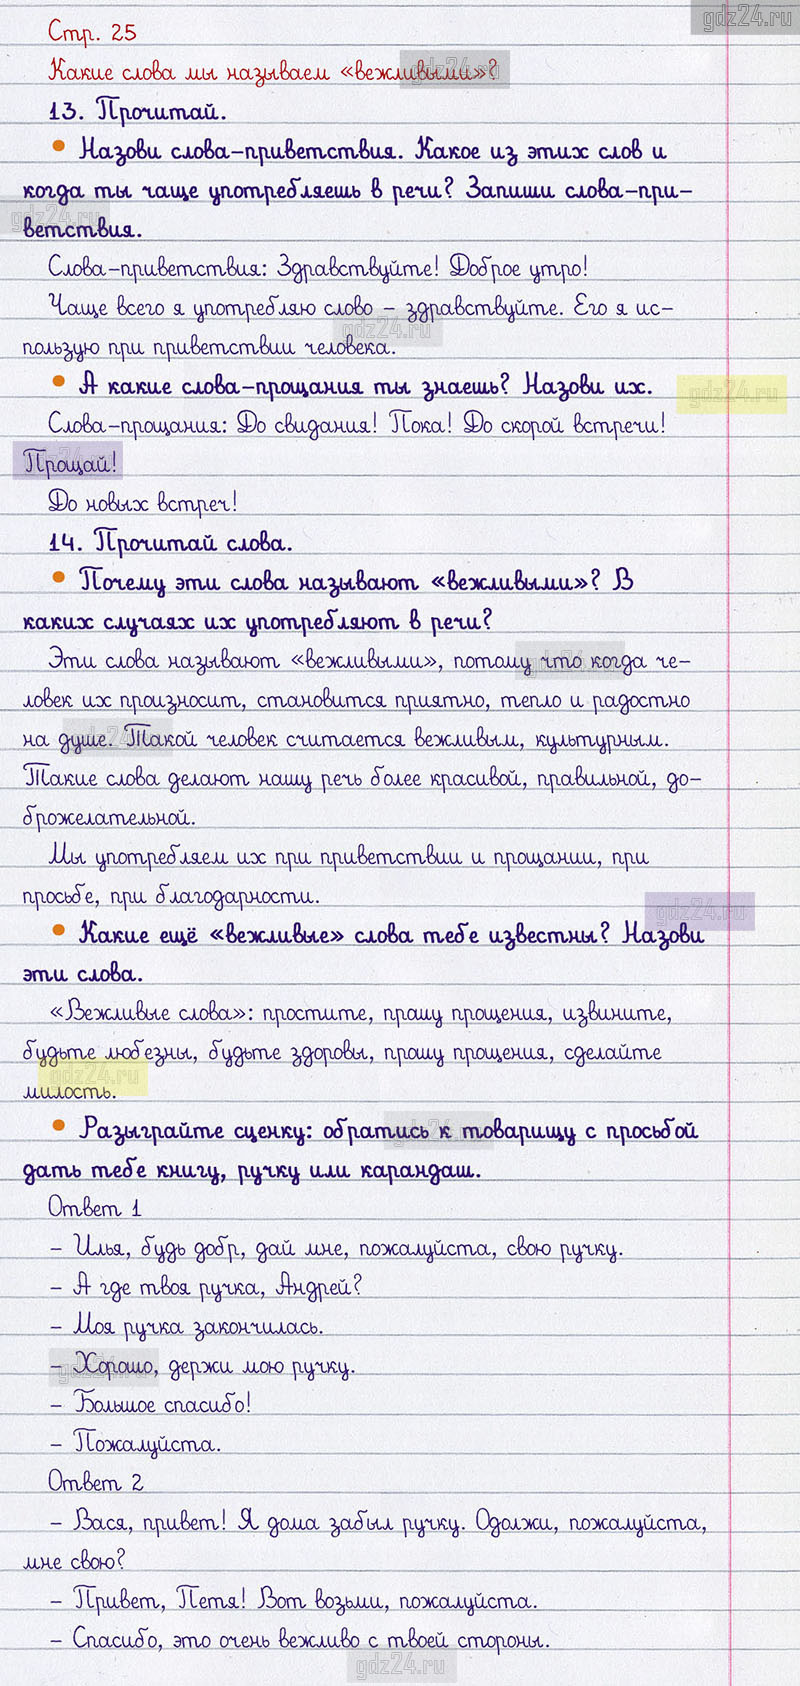 gdz24.ru
Стр. 25
Какие слова мы называем «вежливыми»?
gdz24.ru
13. Прочитай.
• Назови слова-приветствия. Какое из этих слов и
когда ты чаще употребляешь в речи? Запиши слова-при-
gdz24.ru
ветствия.
Слова-приветствия: Здравствуйте! Доброе утро!
Чаще всего я употребляю слово – здравствуйте. Его я ис-
gdz24.ru
пользую при приветствии человека.
• А какие слова-прощания ты знаешь? Назови их.
gdz24.ru
Слова-прощания: До свидания! Пока! До скорой встречи!
Прощай!
До новых встреч!
14. Прочитай слова.
• Почему эти слова называют «вежливыми»? В
каких случаях их употребляют в речи?
Эти слова называют «вежливыми», потому что когда че-
gdz24.ru
ловек их произносит, становится приятно, тепло и радостно
на душе. Такой человек считается вежливым, культурным.
gdz24.ru
Такие слова делают нашу речь более красивой, правильной, до-
брожелательной.
Мы употребляем их при приветствии и прощании, при
просьбе, при благодарности.
gdz24.ru
• Какие ещё «вежливые» слова тебе известны? Назови
эти слова.
«Вежливые слова»: простите, прошу прощения, извините,
будьте любезны, будьте здоровы, прошу прощения, сделайте
gdz24.ru
милость.
• Разыграйте сценку: обратись к товарищу с просьбой
gdz24.ru
дать тебе книгу, ручку или карандаш.
Ответ 1
– Илья, будь добр, дай мне, пожалуйста, свою ручку.
– А где твоя ручка, Андрей?
– Моя ручка закончилась.
– Хорошо, держи мою ручку.
gdz24.ru
– Большое спасибо!
– Пожалуйста.
Ответ 2
– Вася, привет! Я дома забыл ручку. Одолжи, пожалуйста,
мне свою?
– Привет, Петя! Вот возьми, пожалуйста.
– Спасибо, это очень вежливо с твоей стороны.
gdz24.ru